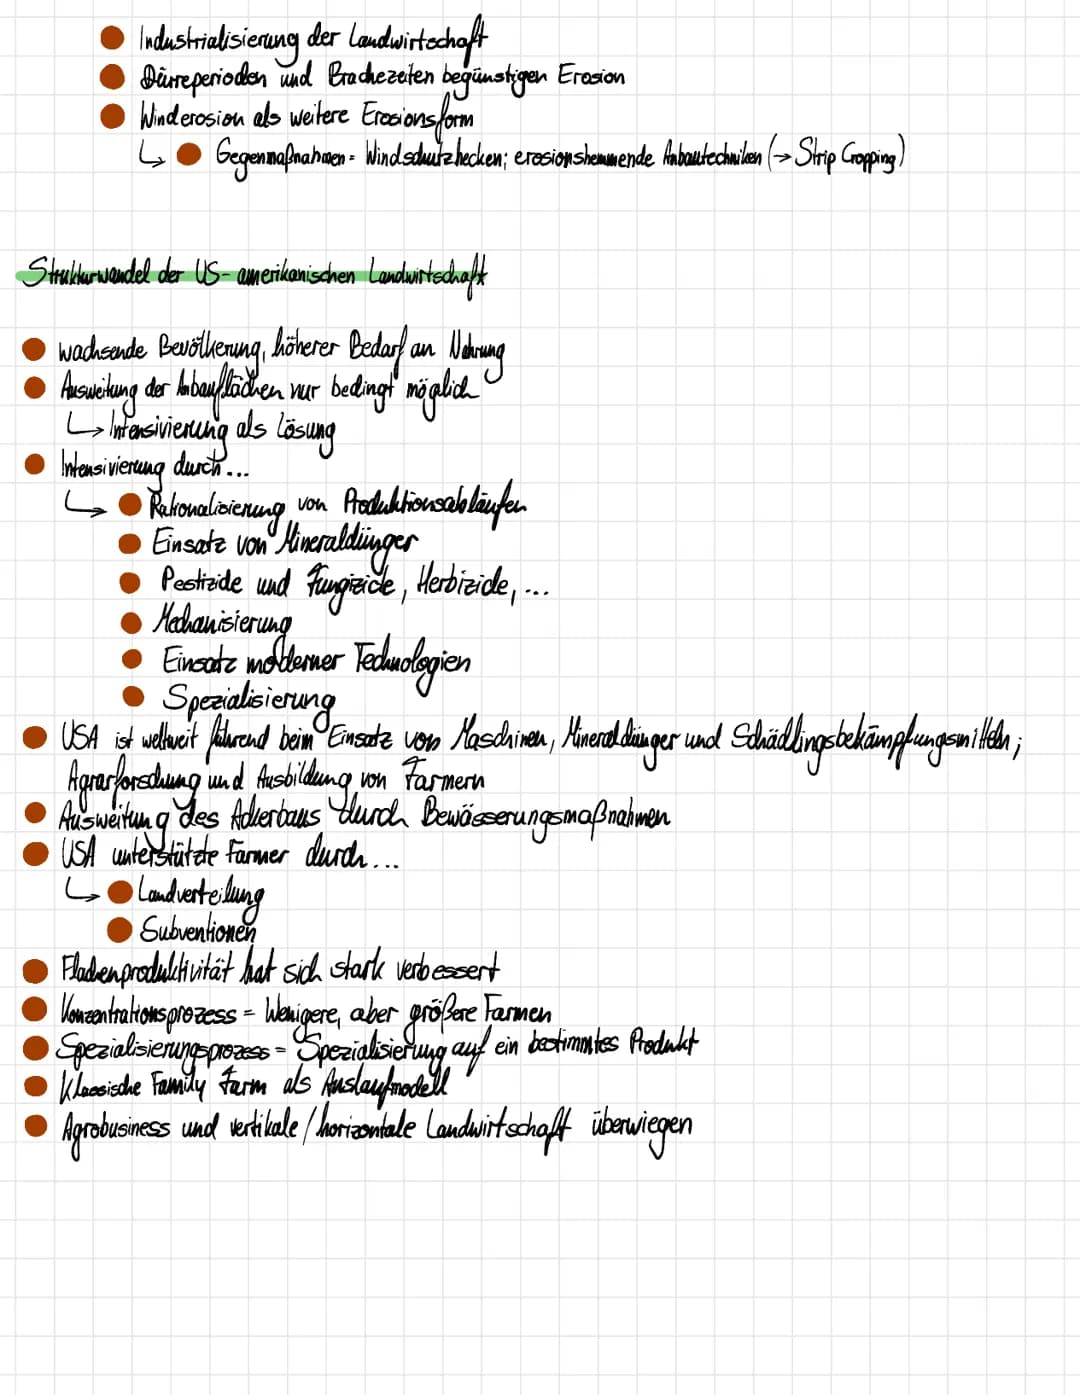 Industrialisierung der Landwirtschaft
Dürreperioden und Brachezeiten begünstigen Erosion
Winderosion als weitere Erosionsform
↳ Gegenmaßnahmen = Windschutzhecken; erosionshemmende Anbautechniken (→ Strip Cropping)
Strukturwandel der US-amerikanischen Landwirtschaft
wachsende Bevölkerung, höherer Bedarf an Nahrung
Ausweitung der Anbauflächen nur bedingt möglich
↳ Intensivierung als Lösung
Intensivierung durch...
↳ Rationalisierung von Produktionsabläufen
Einsatz von Mineraldünger
Pestizide und Fungizide, Herbizide, ...
Mechanisierung
Einsatz moderner Technologien
Spezialisierung
USA ist weltweit führend beim Einsatz von Maschinen, Mineraldünger und Schädlingsbekämpfungsmitteln;
Agrarforschung und Ausbildung von Farmern
Ausweitung des Ackerbaus durch Bewässerungsmaßnahmen
USA unterstützte Farmer durch...
↳ Landverteilung
Subventionen
Flächenproduktivität hat sich stark verbessert
Konzentrationsprozess = Wenigere, aber größere Farmen
Spezialisierungsprozess = Spezialisierung auf ein bestimmtes Produkt
Klassische Family Farm als Auslaufmodell
Agrobusiness und vertikale / horizontale Landwirtschaft überwiegen